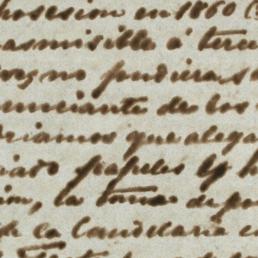 posesion en 1860
asmisible á terce
no pudiera
unciante de los
riamos que alega
papeles y h
la toma de po
de la Candelaria e